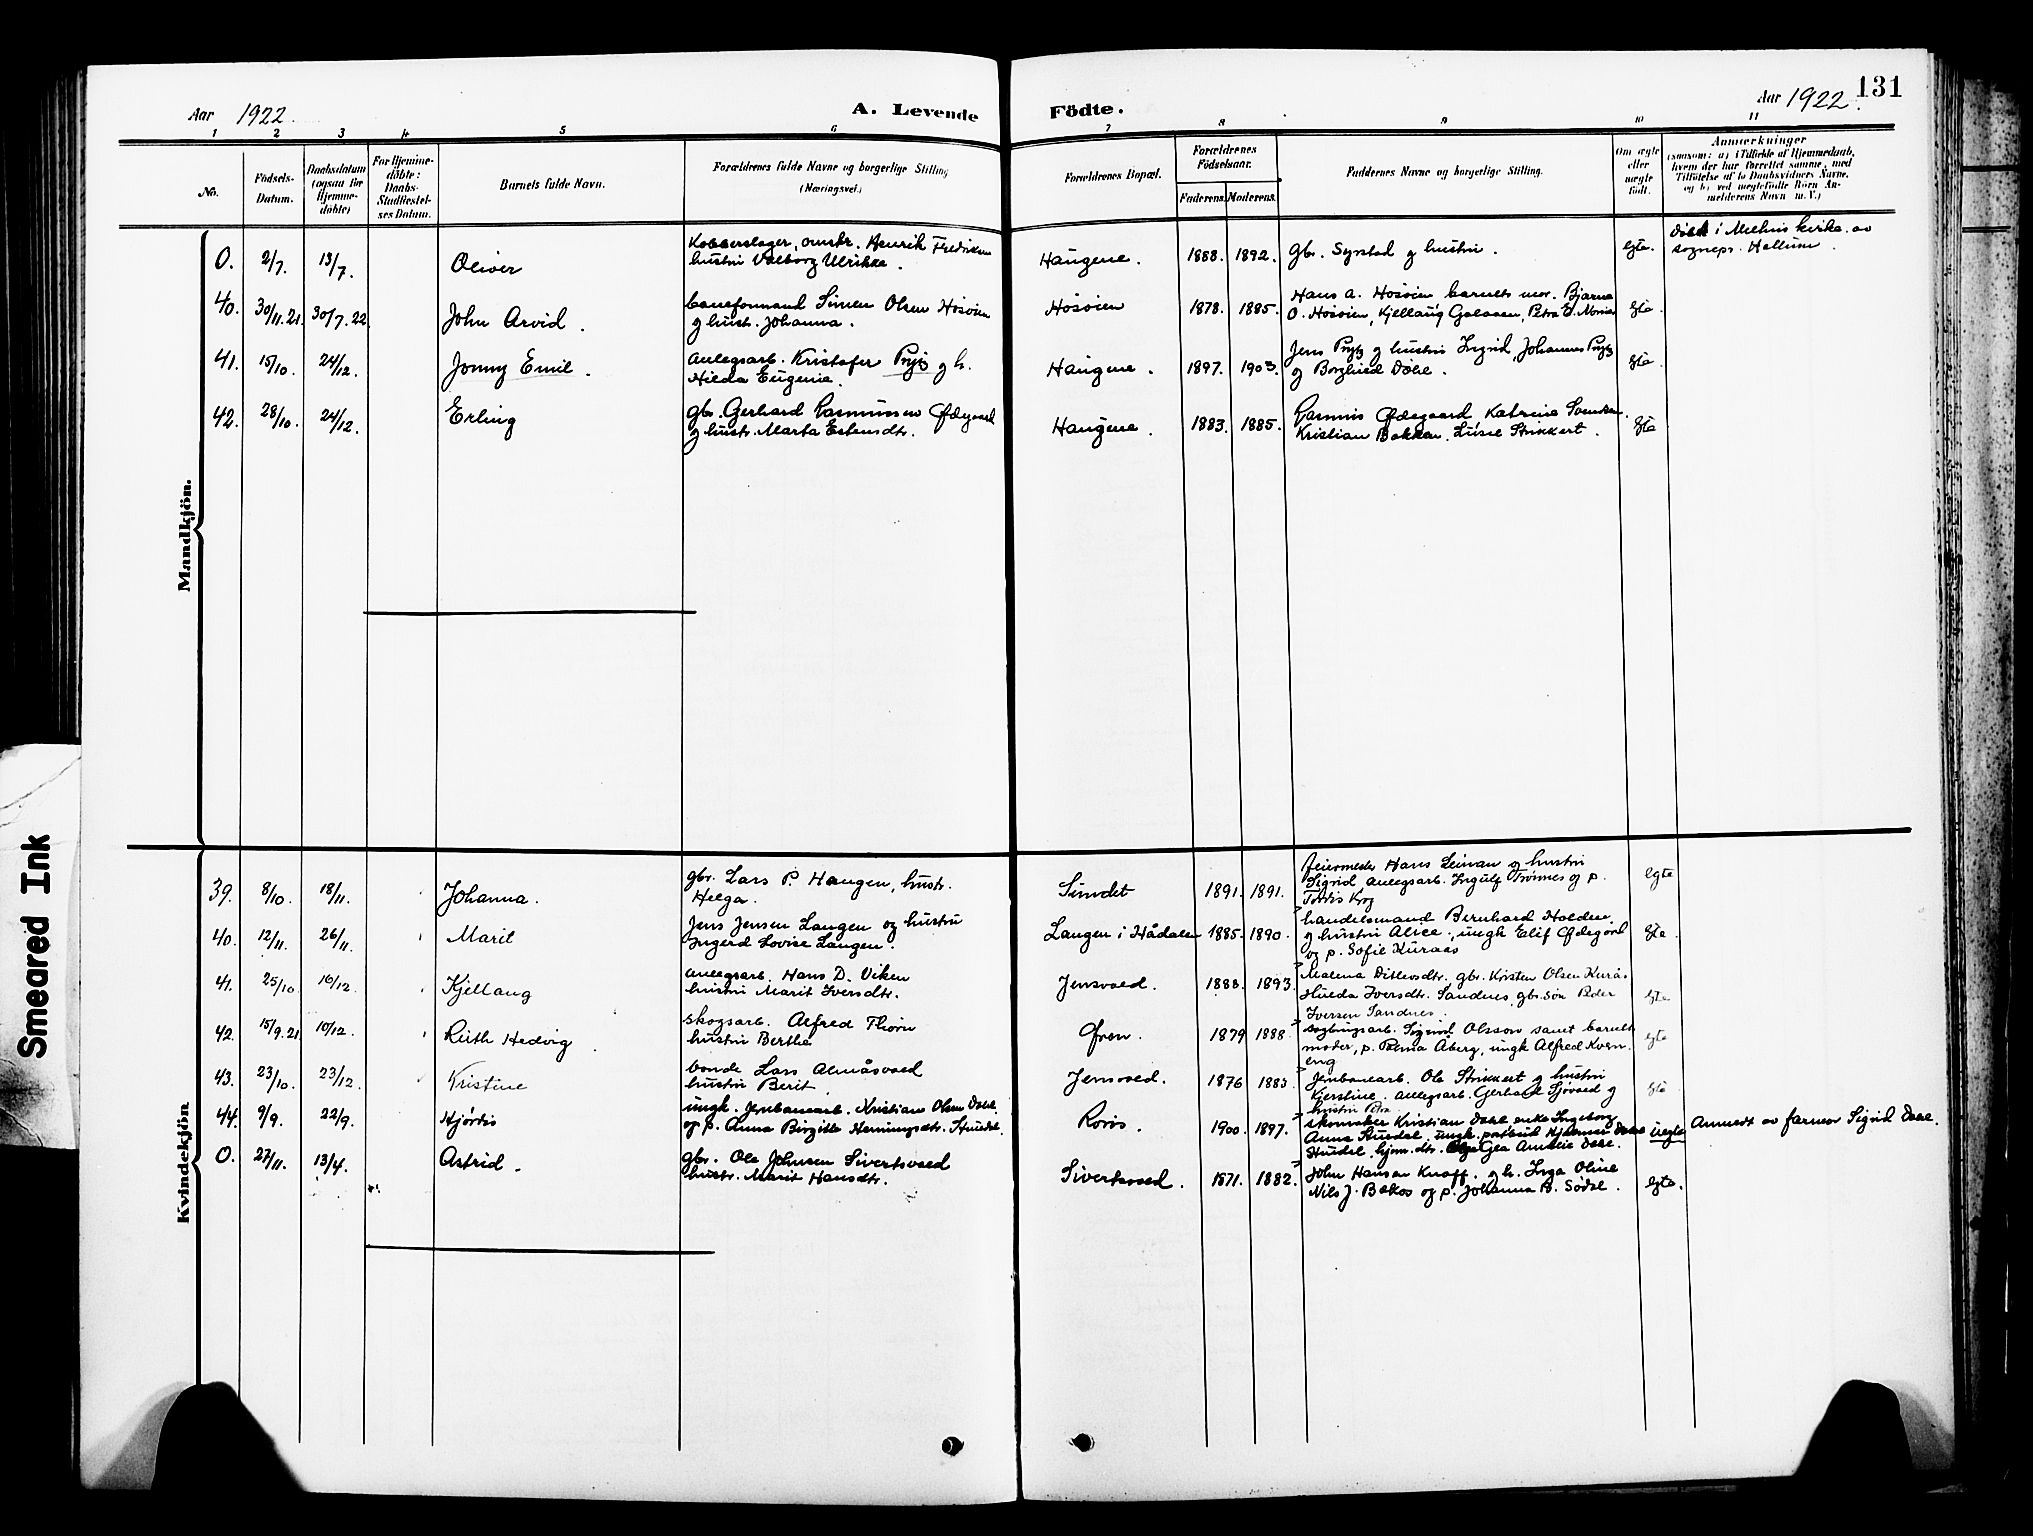 Aar 1922.
A. Levende Födte.
Aar 1922. 131
1 2 3 4 5 6 7 8 9 10 11
No.
Födsels-Datum.
Daabsdatum (ogsaa for Hjemme-döbte)
For Hjemme-döbte: Daabs-Stadfæstel-ses Datum.
Barnets fulde Navn.
Forældrenes fulde Navne og borgerlige Stilling (Næringsvei.)
Forældrenes Bopæl.
Forældrenes Födselsaar.
Faderens. Moderens.
Faddernes Navne og borgerlige Stilling.
Om ægte eller uægte födt.
Anmærkninger
(saasom: a) i Tilfælde af Hjemmedaab, hvem der har forrettet samme, med Tilföielse af to Daabsvidners Navne, og b) ved uægtefödte Börn An-melderens Navn m. V.)
Mandkjön.
0. 2/7. 13/7. Oliver
Kobberslager, omstr. Henrik Fredriksen
hustru Valborg Ulrikke.
Haugene. 1888. 1892. Gbr. Syrstad og hustru. egte.
Døbt i Melhus kirke av
sognepr. Hallum
40. 30/11.21. 30/7.22. John Arvid.
baneformand Simen Olsen Hosøien
og hustr. Johanna.
Hosøien 1878. 1885.
Hans A. Hosøien barnets mor. Bjarne
O. Hosøien, Kjellaug Galaaen, Petra E. egte.
41. 15/10. 24/12. Jonny Emil.
anlegsarb. Kristofer Prytz og h.
Hilda Eugenie.
Haugene. 1897. 1903.
Jens Prytz og hustru Ingrid, Johannes Prytz
og Borghild egte
42. 28/10. 24/12. Erling
gbr. Gerhard Rasmussen Ødegaard
og hustr. Marta Estensdtr.
Haugene. 1883. 1885.
Rasmus Ødegaard Katrine Svendsen.
Kristian Bakken. Lusie Strikkert. egte
Kvindekjön
39. 8/10. 18/11. Johanna.
gbr. Lars P. Haugen, hustr.
Helga.
Sundet 1891. 1891.
feiermester Hans Leinan og hustru
Sigrid anlegsarb. Ingulf Trønnes og p.
Tordis Krog
egte
40. 12/11. 26/11. Marit
Jens Jensen Langen og hustru
Ingerd Lovise Langen.
Langen i Hådalen 1885. 1890.
handelsmand Bernhard Holden
og hustru Alice, ungk Elif Ødegård
og p. Sofie Kuraas
egte.
41. 25/10. 10/12. Kjellaug
anlegsarb. Hans D. Viken
hustru Marit Iversdtr.
Jensvold. 1888. 1893.
Malena Ditlevsdtr. gbr. Kristen Olsen Kurås
Hulda Iversdtr. Sandnes gbr. søn Peder
Iversen Sandnes.
egte
42. 15/9.21. 10/12. Ruth Hedvig.
skogsarb. Alfred Thorn
hustru Berthe
Øren. 1879 1888
sagbrugsarb. Sigurd Olsson samt barnets
moder, p. Palma Åberg, ungk Alfred Kvern
eng
egte
43. 23/10. 23/12. Kristine
bonde Lars Almåsvold
hustru Berit
Jensvold. 1876 1883
Jernbanearb. Ole Strikkert og hustru
Kjerstine. anlegsarb. Gerhard Sjøvold og
hustru Petra
egte
44. 9/9. 22/9. Hjørdis
ungk. Jernbanearb. Kristian Olsen Dahl.
og p. Anna Birgitte Henningsdtr.
Røros. 1900. 1897.
skomaker Kristian Dahl enke Ingeborg
Anna
hjem. dtr. Gea Amalie Dahl.
uegte
Anmeldt av farmor Sigrid Dahl.
0. 27/11. 13/4. Astrid.
gbr. Ole Johnsen Sivertsvold
hustr. Marit Hansdtr.
Sivertsvold. 1871. 1882.
John Hansen Knoff. og h. Inga Oline
Nils J. Bakos og p. Johanna B. Sødal. egte.
Smeared Ink